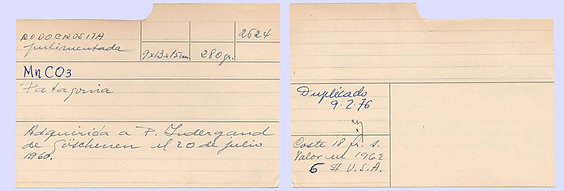 RODOCROSITA
pulimentada
9x13x15cm.
280gr.
2624
MnCO3
Patagonia
Adquirida a P. Indergand
de Göschenen el 20 de julio
1960.
Duplicado
9-2-76
Coste 18 fr. s.
Valor en 1962
6 $ U.S.A.